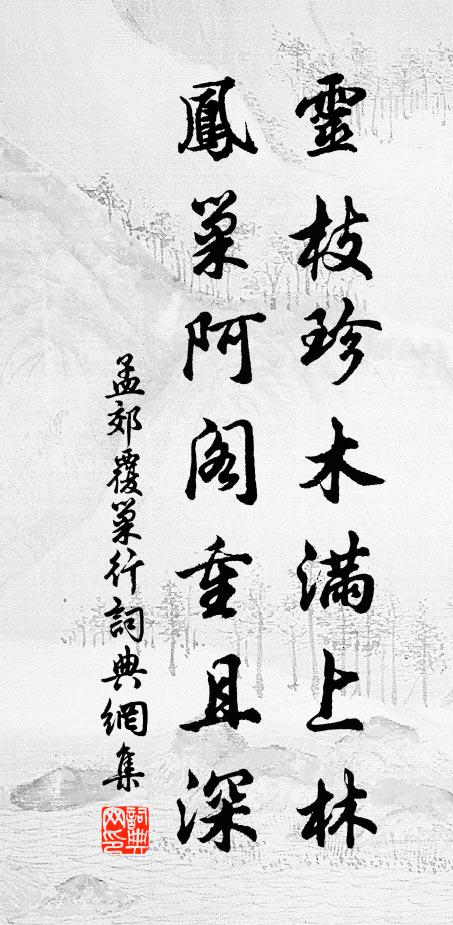 靈枝珍木滿上林
鳳巢阿閣重且深
孟郊覆巢行詞典網集
詞典网印